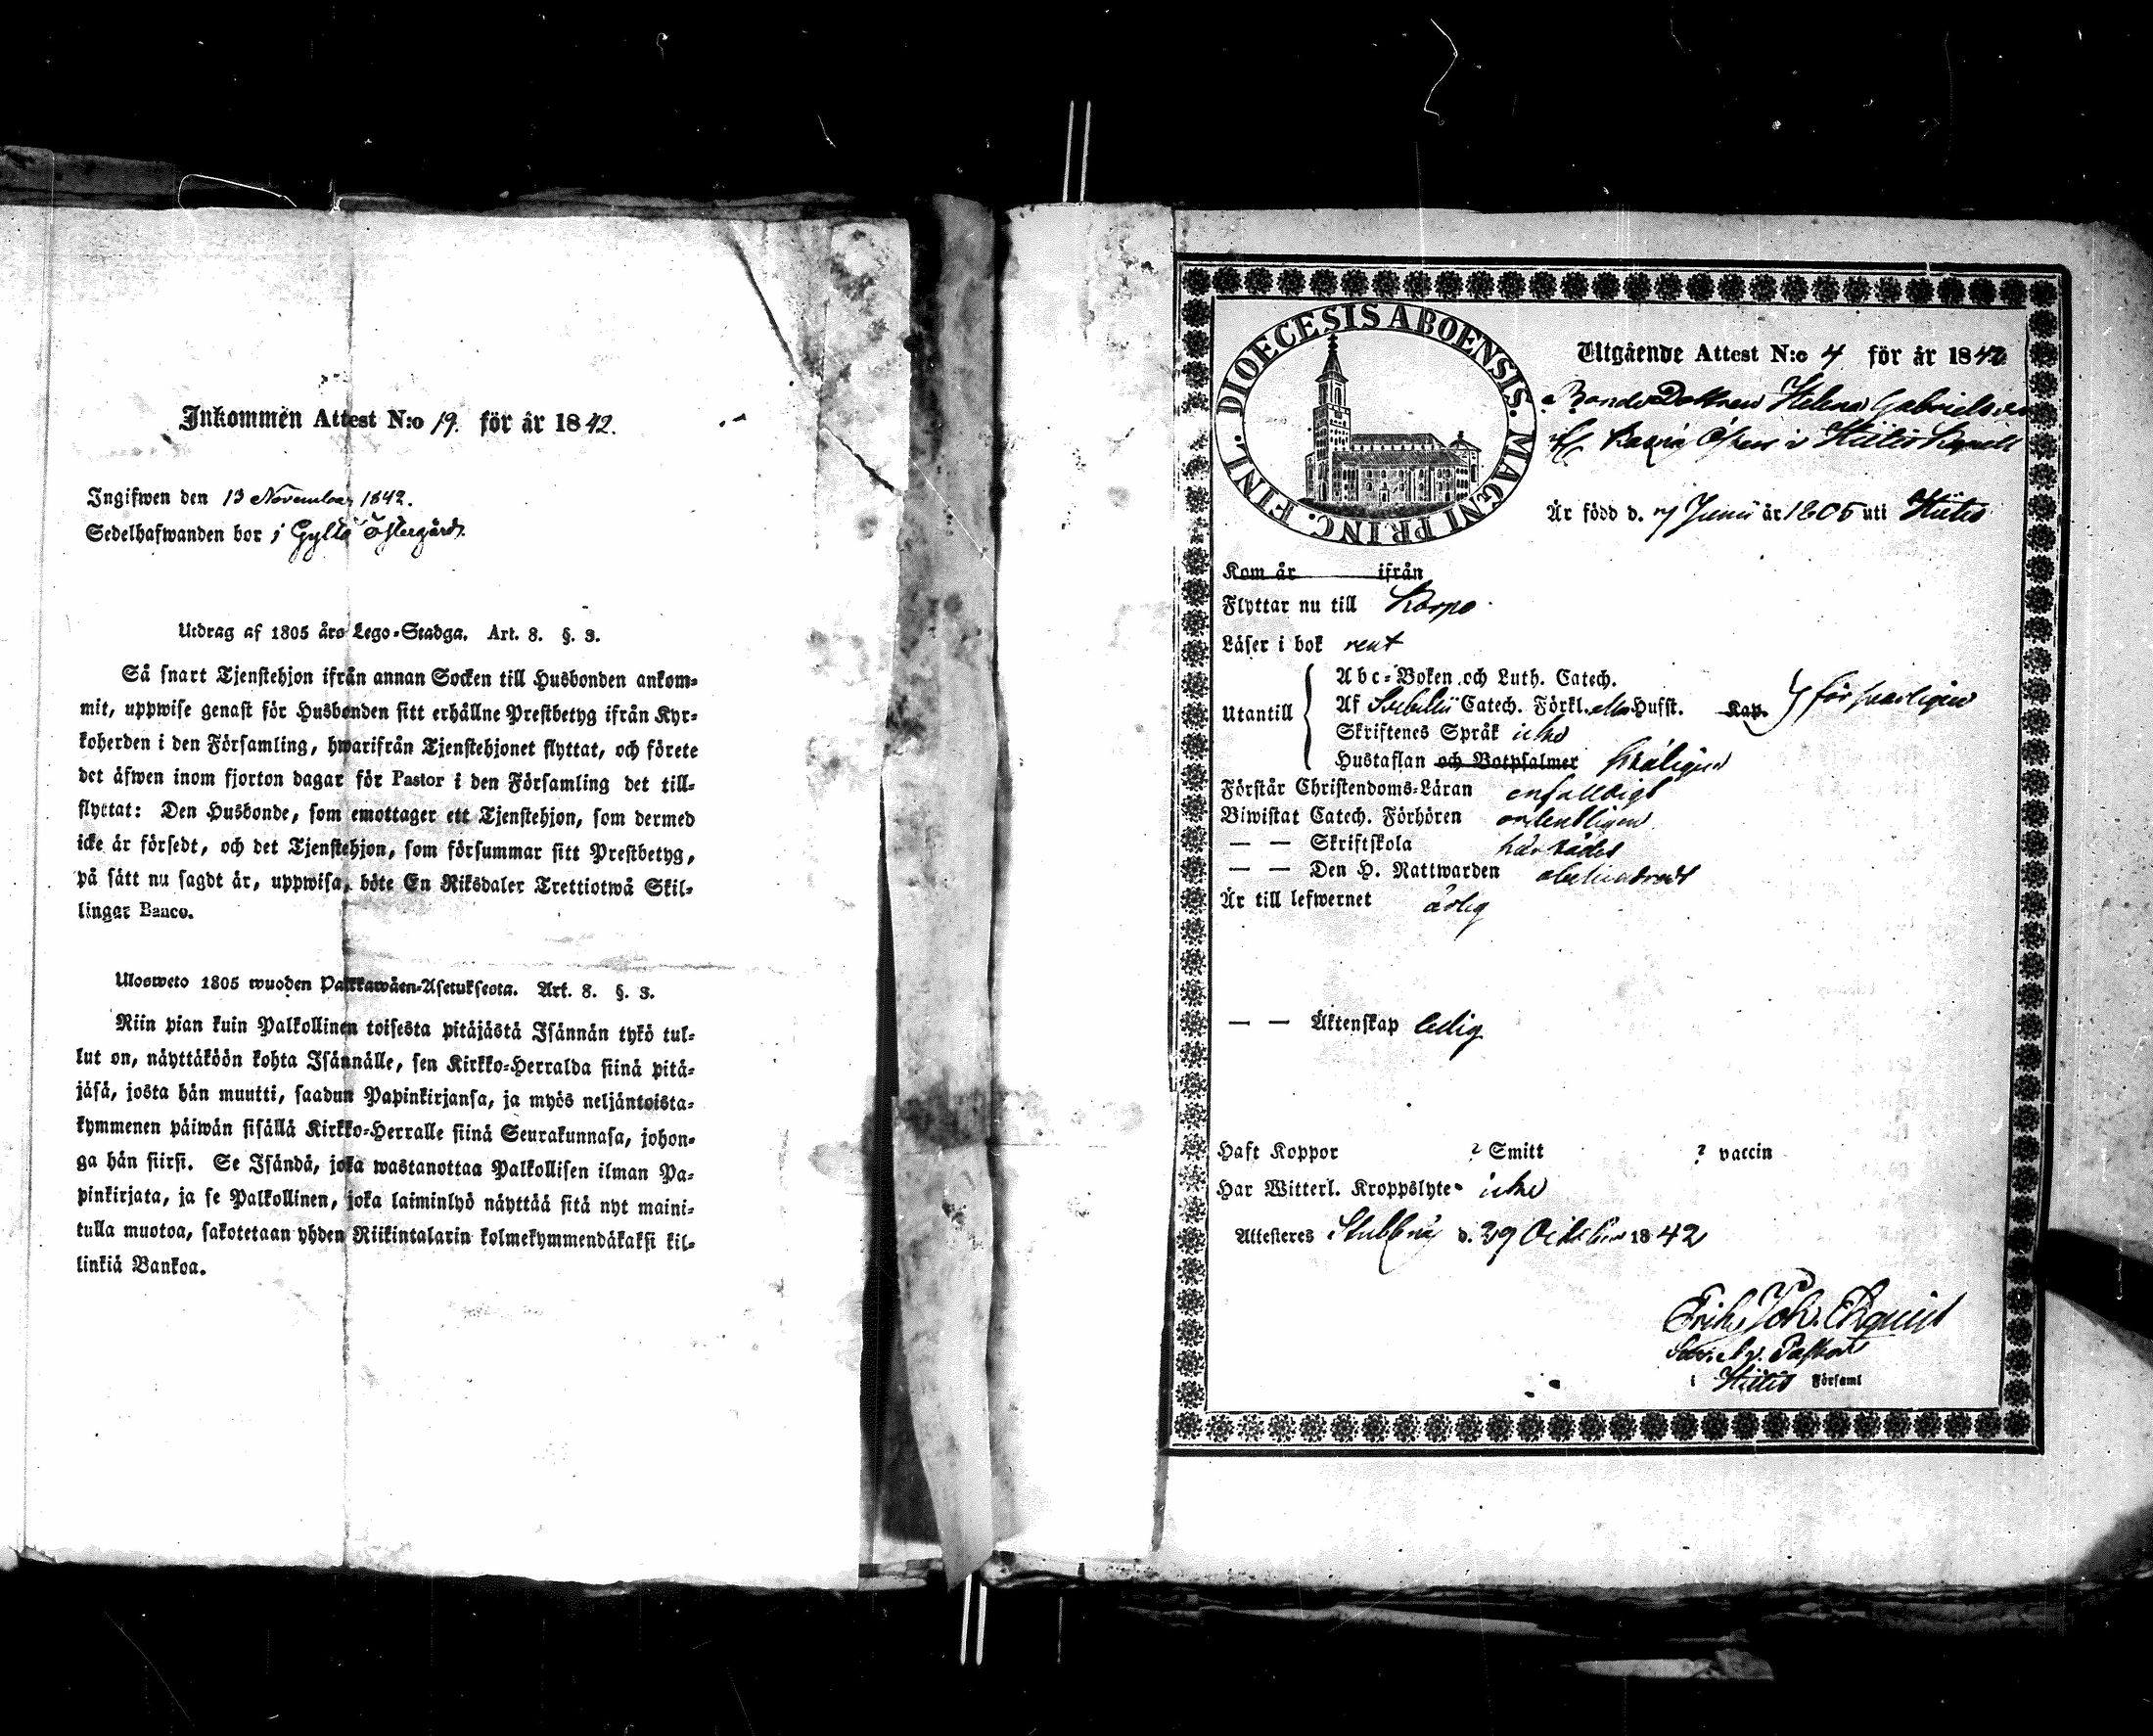 Inkommen Attest N:o 19. för år 1842.
Ingifwen den 13 November 1842.
Sedelhafwanden bor i Gyltö Östergård.
Utdrag af 1805 års Lego-Stadga. Art. 8. §. 3.
Så snart Tjenstehjon ifrån annan Socken till Husbonden ankom-
mit, uppwise genast för Husbonden sitt erhållne Prestbetyg ifrån Kyr-
koherden i den Församling, hwarifrån Tjenstehjonet flyttat, och förete
det äfwen inom fjorton dagar för Pastor i den Församling det till-
flyttat: Den Husbonde, som emottager ett Tjenstehjon, som dermed
icke är försedt, och det Tjenstehjon, som försummar sitt Prestbetyg,
på sätt nu sagdt är, uppwisa, böte En Riksdaler Trettiotwå Skil-
lingar Banco.
Ulosweto 1805 wuoden Palkkawäen-Asetuksesta. Art. 8. §. 3.
Niin pian kuin Palkollinen toisesta pitäjästä Isännän tykö tul-
lut on, näyttäköön kohta Isännälle, sen Kirkko-Herralda siinä pitä-
jäsä, josta hän muutti, saadun Papinkirjansa, ja myös neljäntoista-
kymmenen päiwän sisällä Kirkko-Herralle siinä Seurakunnasa, johon-
ga hän siirsi. Se Isändä, joka wastanottaa Palkollisen ilman Pa-
pinkirjata, ja se Palkollinen, joka laiminlyö näyttää sitä nyt maini-
tulla muotoa, sakotetaan yhden Riikintalarin kolmekymmendäkaksi kil-
linkiä Bankoa.
DIOECESIS ABOENSIS. MAGNI PRINC. FINL.
Utgående Attest N:o 4 för år 1842
Bonde Dottren Helena Gabrielsdr
i Hitis Kapell
Är född d. 7 Junii år 1806 uti Hitis
Kom år ifrån
Flyttar nu till Korpo
Läser i bok rent
Utantill
Abc-Boken och Luth. Catech.
Af Svebilii Catech. Förkl. Hufst. Kap. försvarligen
Skriftenes Språk icke
Hustaflan och Botpsalmer
Förstår Christendoms-Läran enfaldigt
Biwistat Catech. Förhören ordentligen
— — Skriftskola
— — Den H. Nattwarden obehindradt
Är till lefwernet ärlig
— — Äktenskap ledig
Haft Koppor ? Smitt ? vaccin
Har Witterl. Kroppslyte icke
Attesteres Stubbnäs d. 29 October 1842
Erik Joh. Ekquist
v. Pastor
i Hitis Församl